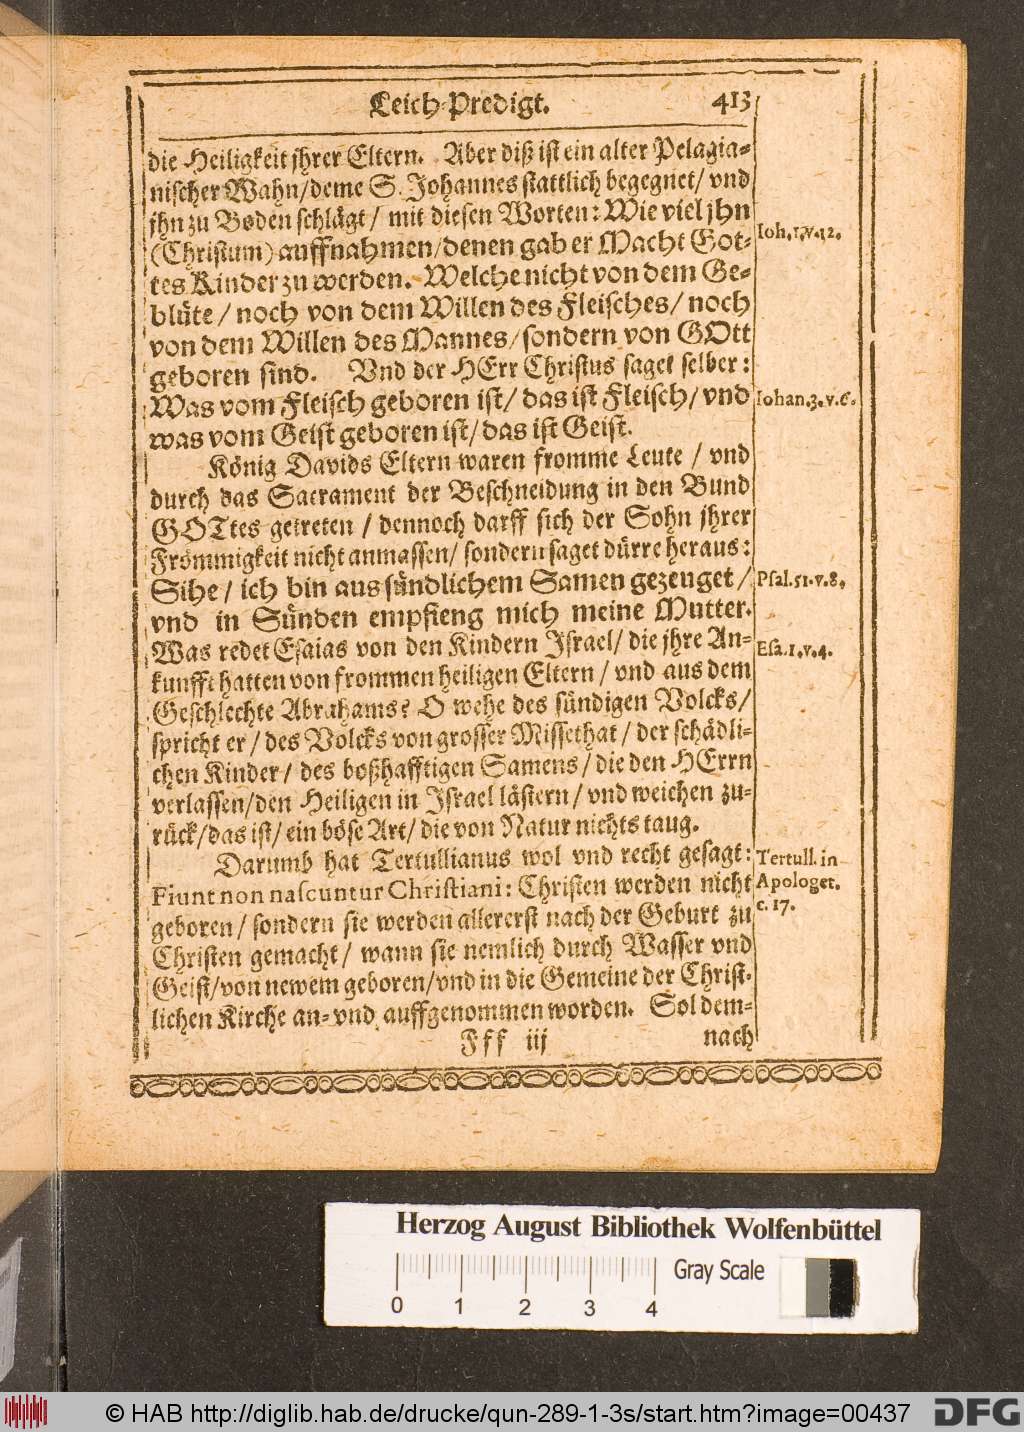 Leich-Predigt. 413
die Heiligkeit jhrer Eltern. Aber diß ist ein alter Pelagia-
nischer Wahn/deme S. Johannes stattlich begegnet/ vnd
jhn zu Boden schlägt/ mit diesen Worten: Wie viel jhn
(Christum) auffnahmen/denen gab er Macht Got-
tes Kinder zu werden. Welche nicht von dem Ge-
blüte/ noch von dem Willen des Fleisches/ noch
von dem Willen des Mannes/ sondern von GOtt
geboren sind. Vnd der HErr Christus saget selber:
Was vom Fleisch geboren ist/ das ist Fleisch/ vnd
was vom Geist geboren ist/ das ist Geist.
König Davids Eltern waren fromme Leute/ vnd
durch das Sacrament der Beschneidung in den Bund
GOTtes getreten/ dennoch darff sich der Sohn jhrer
Frömmigkeit nicht anmassen/ sondern saget dürre heraus:
Sihe/ ich bin aus sündlichem Samen gezeuget/
vnd in Sünden empfieng mich meine Mutter.
Was redet Esaias von den Kindern Israel/ die jhre An-
kunfft hatten von frommen heiligen Eltern/ vnd aus dem
Geschlechte Abrahams? O wehe des sündigen Volcks/
spricht er/ des Volcks von grosser Missethat/ der schädli-
chen Kinder/ des boßhafftigen Samens/ die den HErrn
verlassen/den Heiligen in Israel lästern/ vnd weichen zu-
rück/das ist/ ein böse Art/ die von Natur nichts taug.
Darumb hat Tertullianus wol vnd recht gesagt:
Fiunt non nascuntur Christiani: Christen werden nicht
geboren/ sondern sie werden allererst nach der Geburt zu
Christen gemacht/ wann sie nemlich durch Wasser vnd
Geist/von newem geboren/vnd in die Gemeine der Christ-
lichen Kirche an- vnd auffgenommen worden. Sol dem-
Fff iij nach
Ioh. 1. v. 12.
Iohan. 3. v. 6.
Psal. 51. v. 8.
Esa. 1. v. 4.
Tertull. in
Apologet.
c. 17.
Herzog August Bibliothek Wolfenbüttel
Gray Scale
0 1 2 3 4
© HAB http://diglib.hab.de/drucke/qun-289-1-3s/start.htm?image=00437
DFG